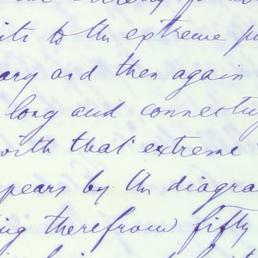 its to the extreme
ary and then again
long and connecting
with that extreme
pears by the diagra
ing therefrom fifty